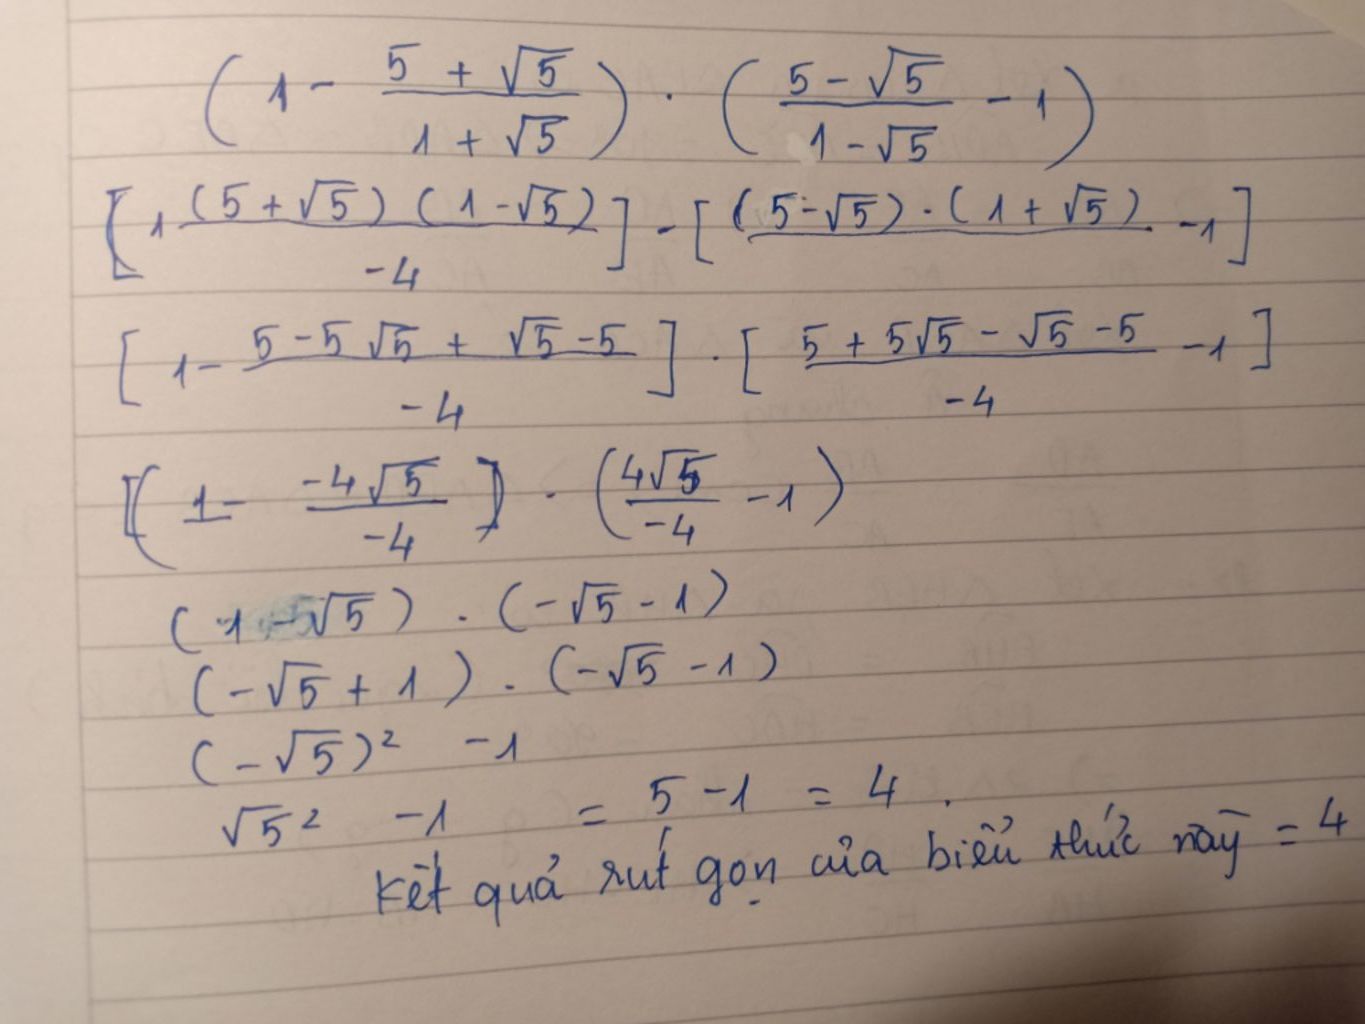 (1 - (5 + √5)/(1 + √5)) · ((5 - √5)/(1 - √5) - 1)
[1 (5 + √5) (1 - √5)/-4] - [(5 - √5) · (1 + √5)/ -1]
[1 - (5 - 5√5 + √5 - 5)/-4] · [(5 + 5√5 - √5 - 5)/-4 - 1]
[(1 - (-4√5)/-4)] · (4√5/-4 - 1)
(1 - √5) · (-√5 - 1)
(-√5 + 1) · (-√5 - 1)
(-√5)² - 1
√5² - 1 = 5 - 1 = 4.
Kết quả rút gọn của biểu thức này = 4